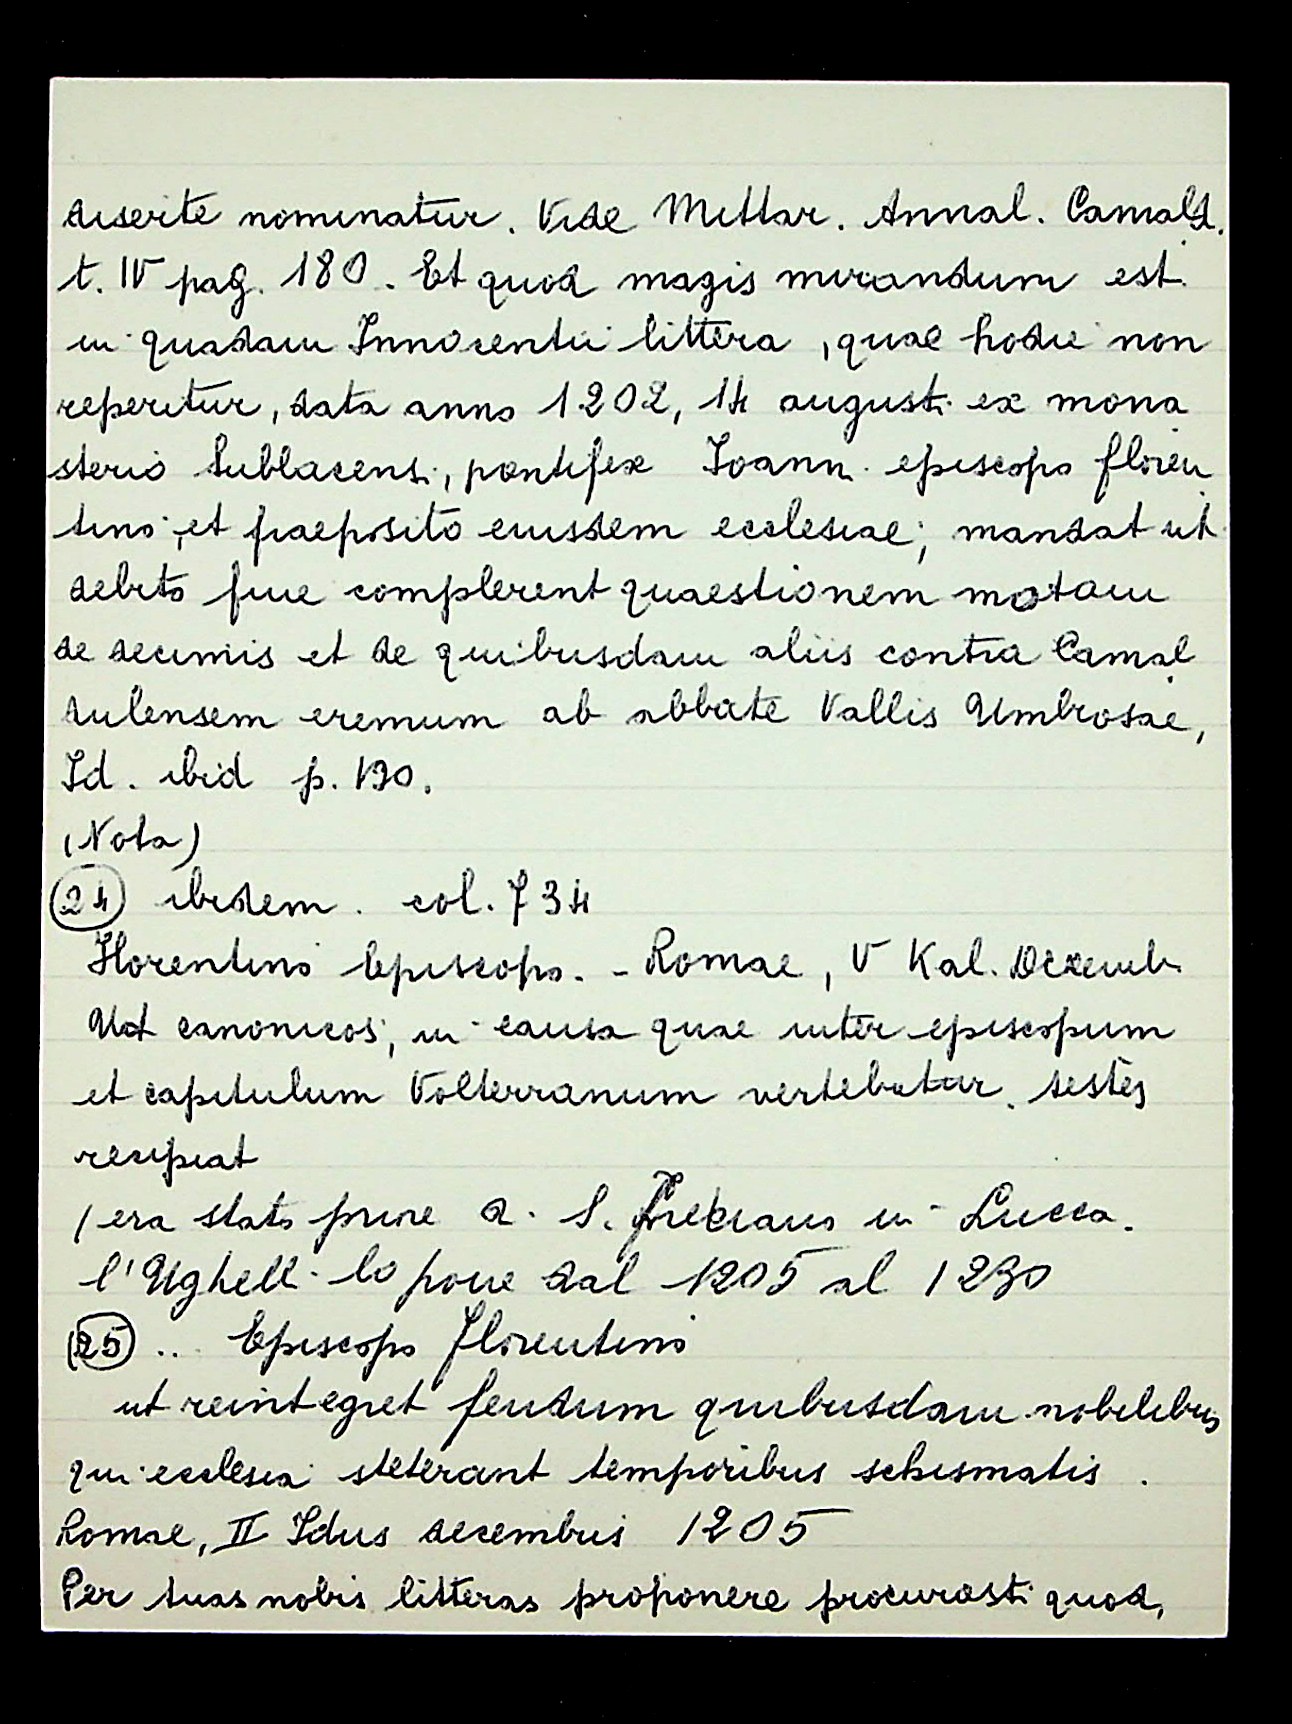 diserte nominatur. Vide Mittar. Annal. Camald.
t. IV pag. 180. Et quod magis mirandum est
in quadam Innocentii littera, quae hodie non
reperitur, data anno 1202, 14 augusti ex mona
sterio Sublacensi, pontifex Ioanni episcopo floren
tino, et praeposito eiusdem ecclesiae, mandat ut
debito fine complerent quaestionem motam
de decimis et de quibusdam aliis contra Camal
dulensem eremum ab abbate Vallis Umbrosae,
Id. ibid p. 190.
(Nota)
24 ibidem. col. 734
Florentino Episcopo. - Romae, V Kal. Decemb.
Ut canonicos, in causa quae inter episcopum
et capitulum Volterranum vertebatur, testes
recipiat
(era stato priore a S. Frediano in Lucca.
l'Ughelli lo pone dal 1205 al 1230
(25) .. Episcopo Florentino
ut reintegret feudum quibusdam nobilibus
qui ecclesiai steterant temporibus schismatis.
Romae, II Idus decembris 1205
Per tuas nobis litteras proponere procurasti quod,